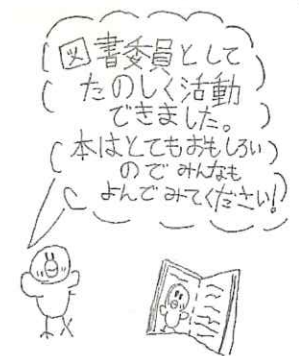 図書委員として
たのしく活動
できました。
本はとてもおもしろい
のでみんなも
よんでみてください!